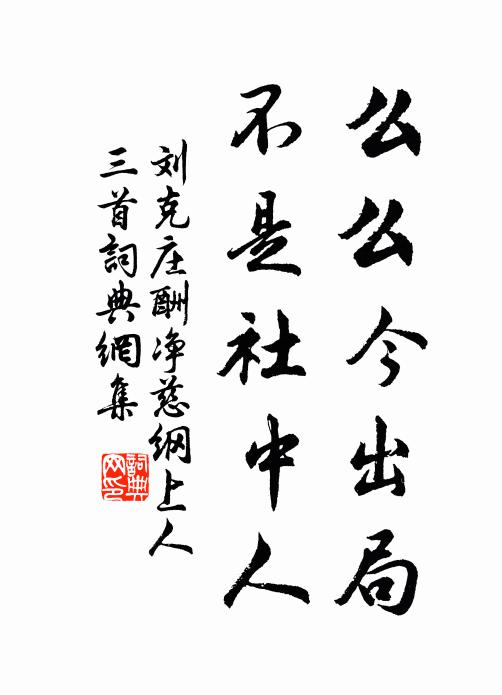 么么今出局
不是社中人
刘克庄酬净慈纲上人
三首詞典網集
詞典網印